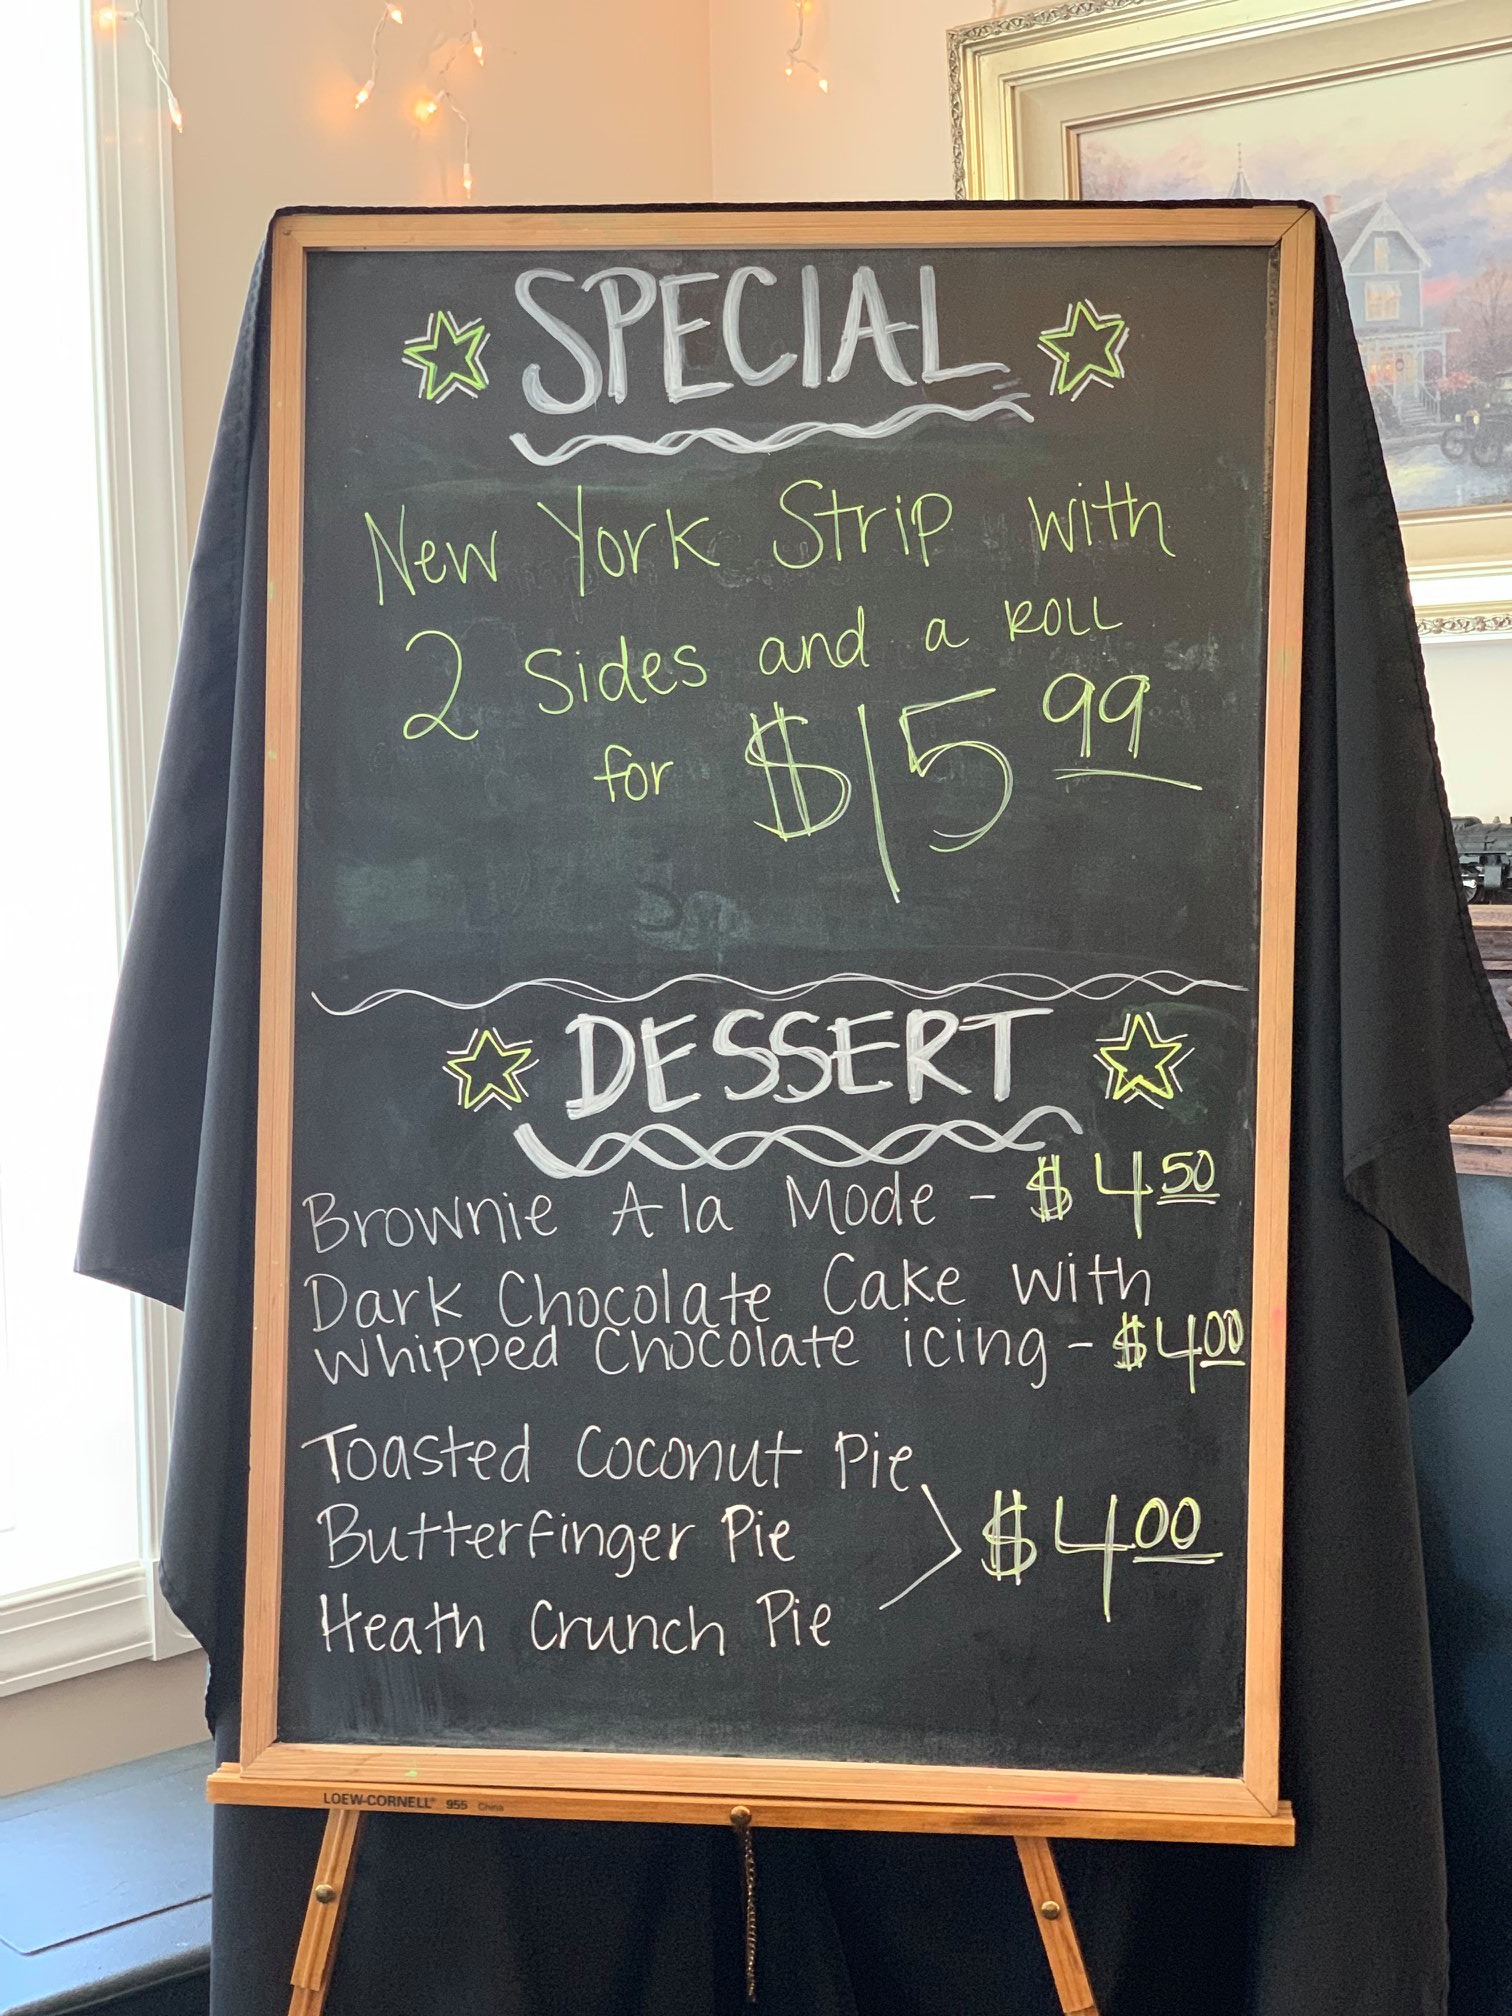 SPECIAL
New York Strip with
2 Sides and a ROLL
for $15 99
DESSERT
Brownie A la Mode - $4 50
Dark Chocolate Cake with
whipped Chocolate icing - $4 00
Toasted Coconut Pie
Butterfinger Pie
$4 00
Heath Crunch Pie
LOEW-CORNELL® 955 China